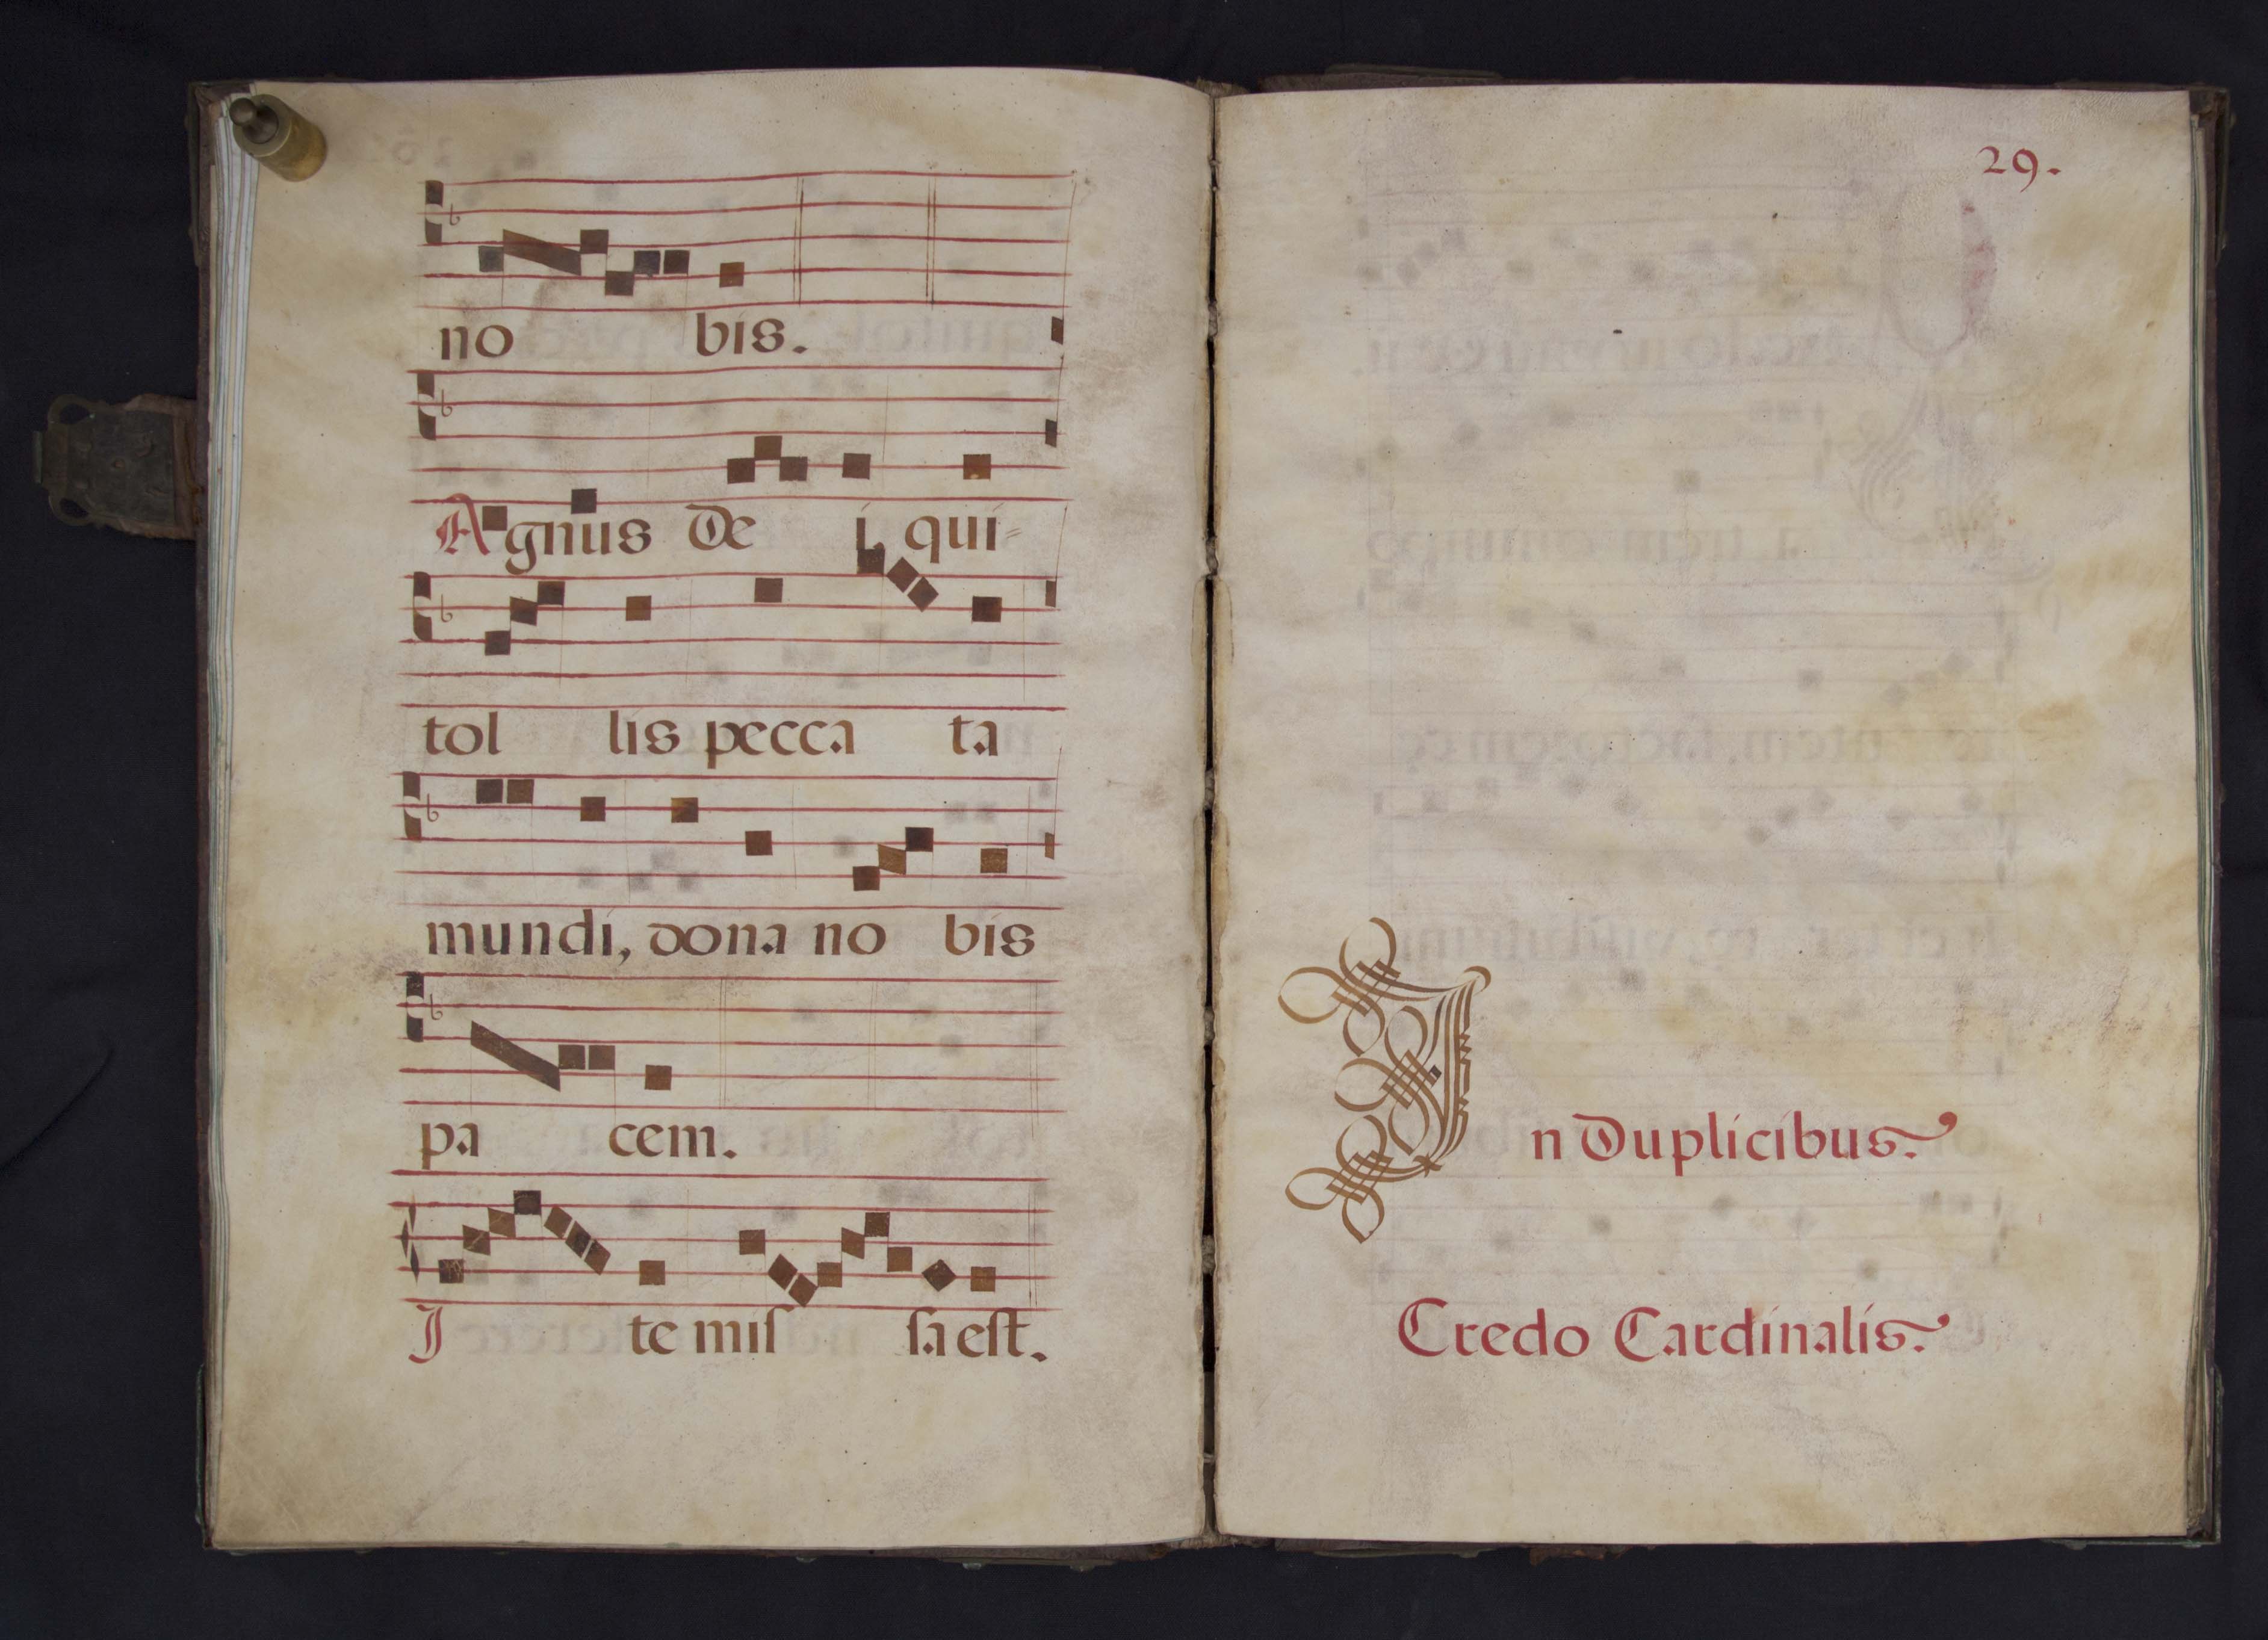 no bis.
Agnus De i, qui=
tol lis pecca ta
mundi, dona no bis
pa cem.
Ite miſ ſa eſt.
29.
In Duplicibus.
Credo Cardinalis.